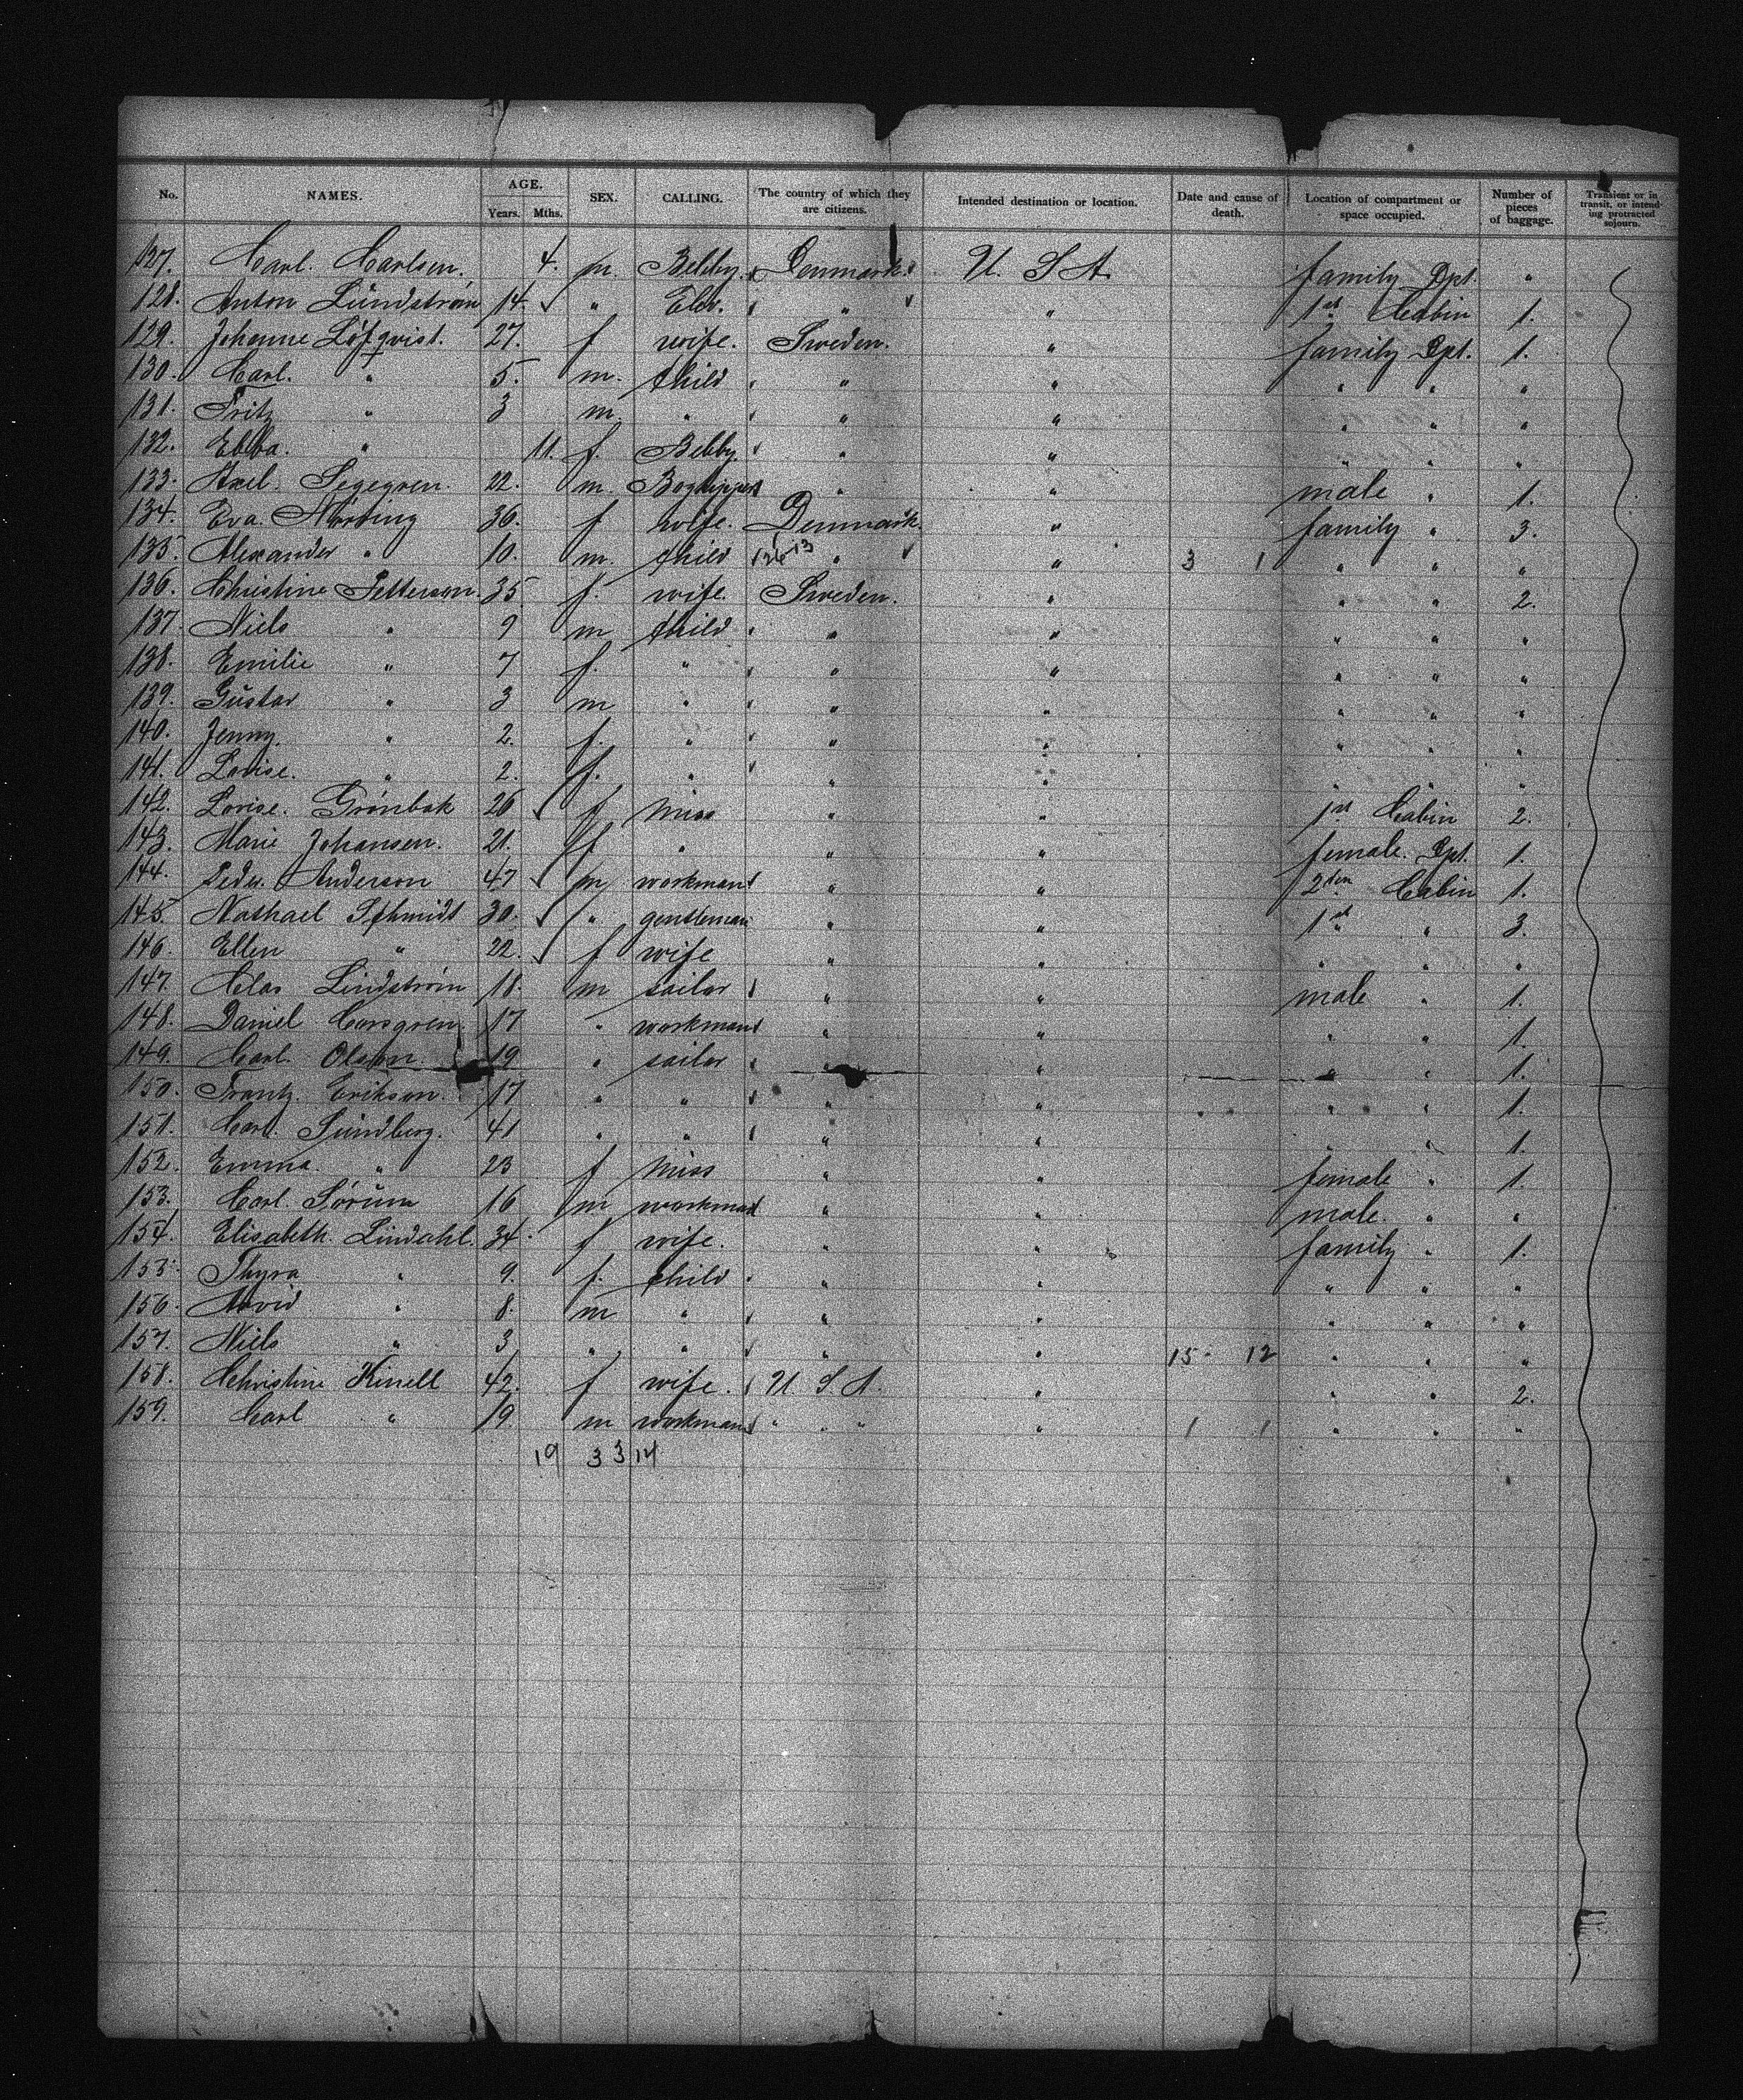 No. NAMES. AGE. Years. Mths. SEX. CALLING. The country of which they are citizens. Intended destination or location. Date and cause of death. Location of compartment or space occupied. Number of pieces of baggage. Transient or in transit, or intending protracted sojourn.
127. Carl. Carlsen. 4. m. Bebby. Denmark. U. S A. family Dpt. "
128. Anton Lundstrøm 14. " Elev. " " 1st Cabin 1.
129. Johanne Løfqvist. 27. f wife. Sweden. " family Dpt. 1.
130. Carl. " 5. m. child " " " " "
131. Fritz " 3 m. " " " " " "
132. Ebba. " 11. f. Bebby. " " " " "
133. Axel. Segegren. 22. m. " " male " 1.
134. Eva. 36. f wife. Denmark " family " 3.
135. Alexander " 10. m. child 126 13 " " 3 1 " " "
136. Christine Petterson. 35 f. wife. Sweden. " " " 2.
137. Niels " 9 m child " " " " "
138. Emilie " 7 f. " " " " " "
139. Gustav " 3 m " " " " " "
140. Jenny. " 2. f. " " " " " "
141. Lovise. " 2. f. " " " " " "
142. Lovise. Grönbak 26 f miss " " 1st Cabin 2.
143. Marie Johansen. 21. f " " " female. Dpt. 1.
144. Peder. Anderson 47 m workman " " 2den Cabin 1.
145. Nathael Schmidt 30. " gentleman " " 1st " 3.
146. Ellen " 22. f wife " " " " "
147. Clas Lindstrøm 18. m sailor " " male " 1.
148. Daniel Corsgren 17 " workman " " " " 1.
149. Carl. Olson. 19 " sailor " " " " 1.
150. Frantz. Erikson. 17 " " " " " " 1.
151. Carl. Sundberg. 41 " " " " " " 1.
152. Emma. " 23 f miss " " female " 1.
153. Carl. Sørum 16 m workman " " male. " "
154. Elisabeth. Lindahl. 34. f wife. " " family " 1.
155. Thyra " 9. f. child " " " " "
156. Arvid " 8. m " " " " " "
157. Niels " 3 " " " " 15 12 " " "
158. Christine Kinell 42. f wife. U S A. " " " 2.
159. Carl " 19 m workman " " " " 1 1 " " "
19 3 3 14